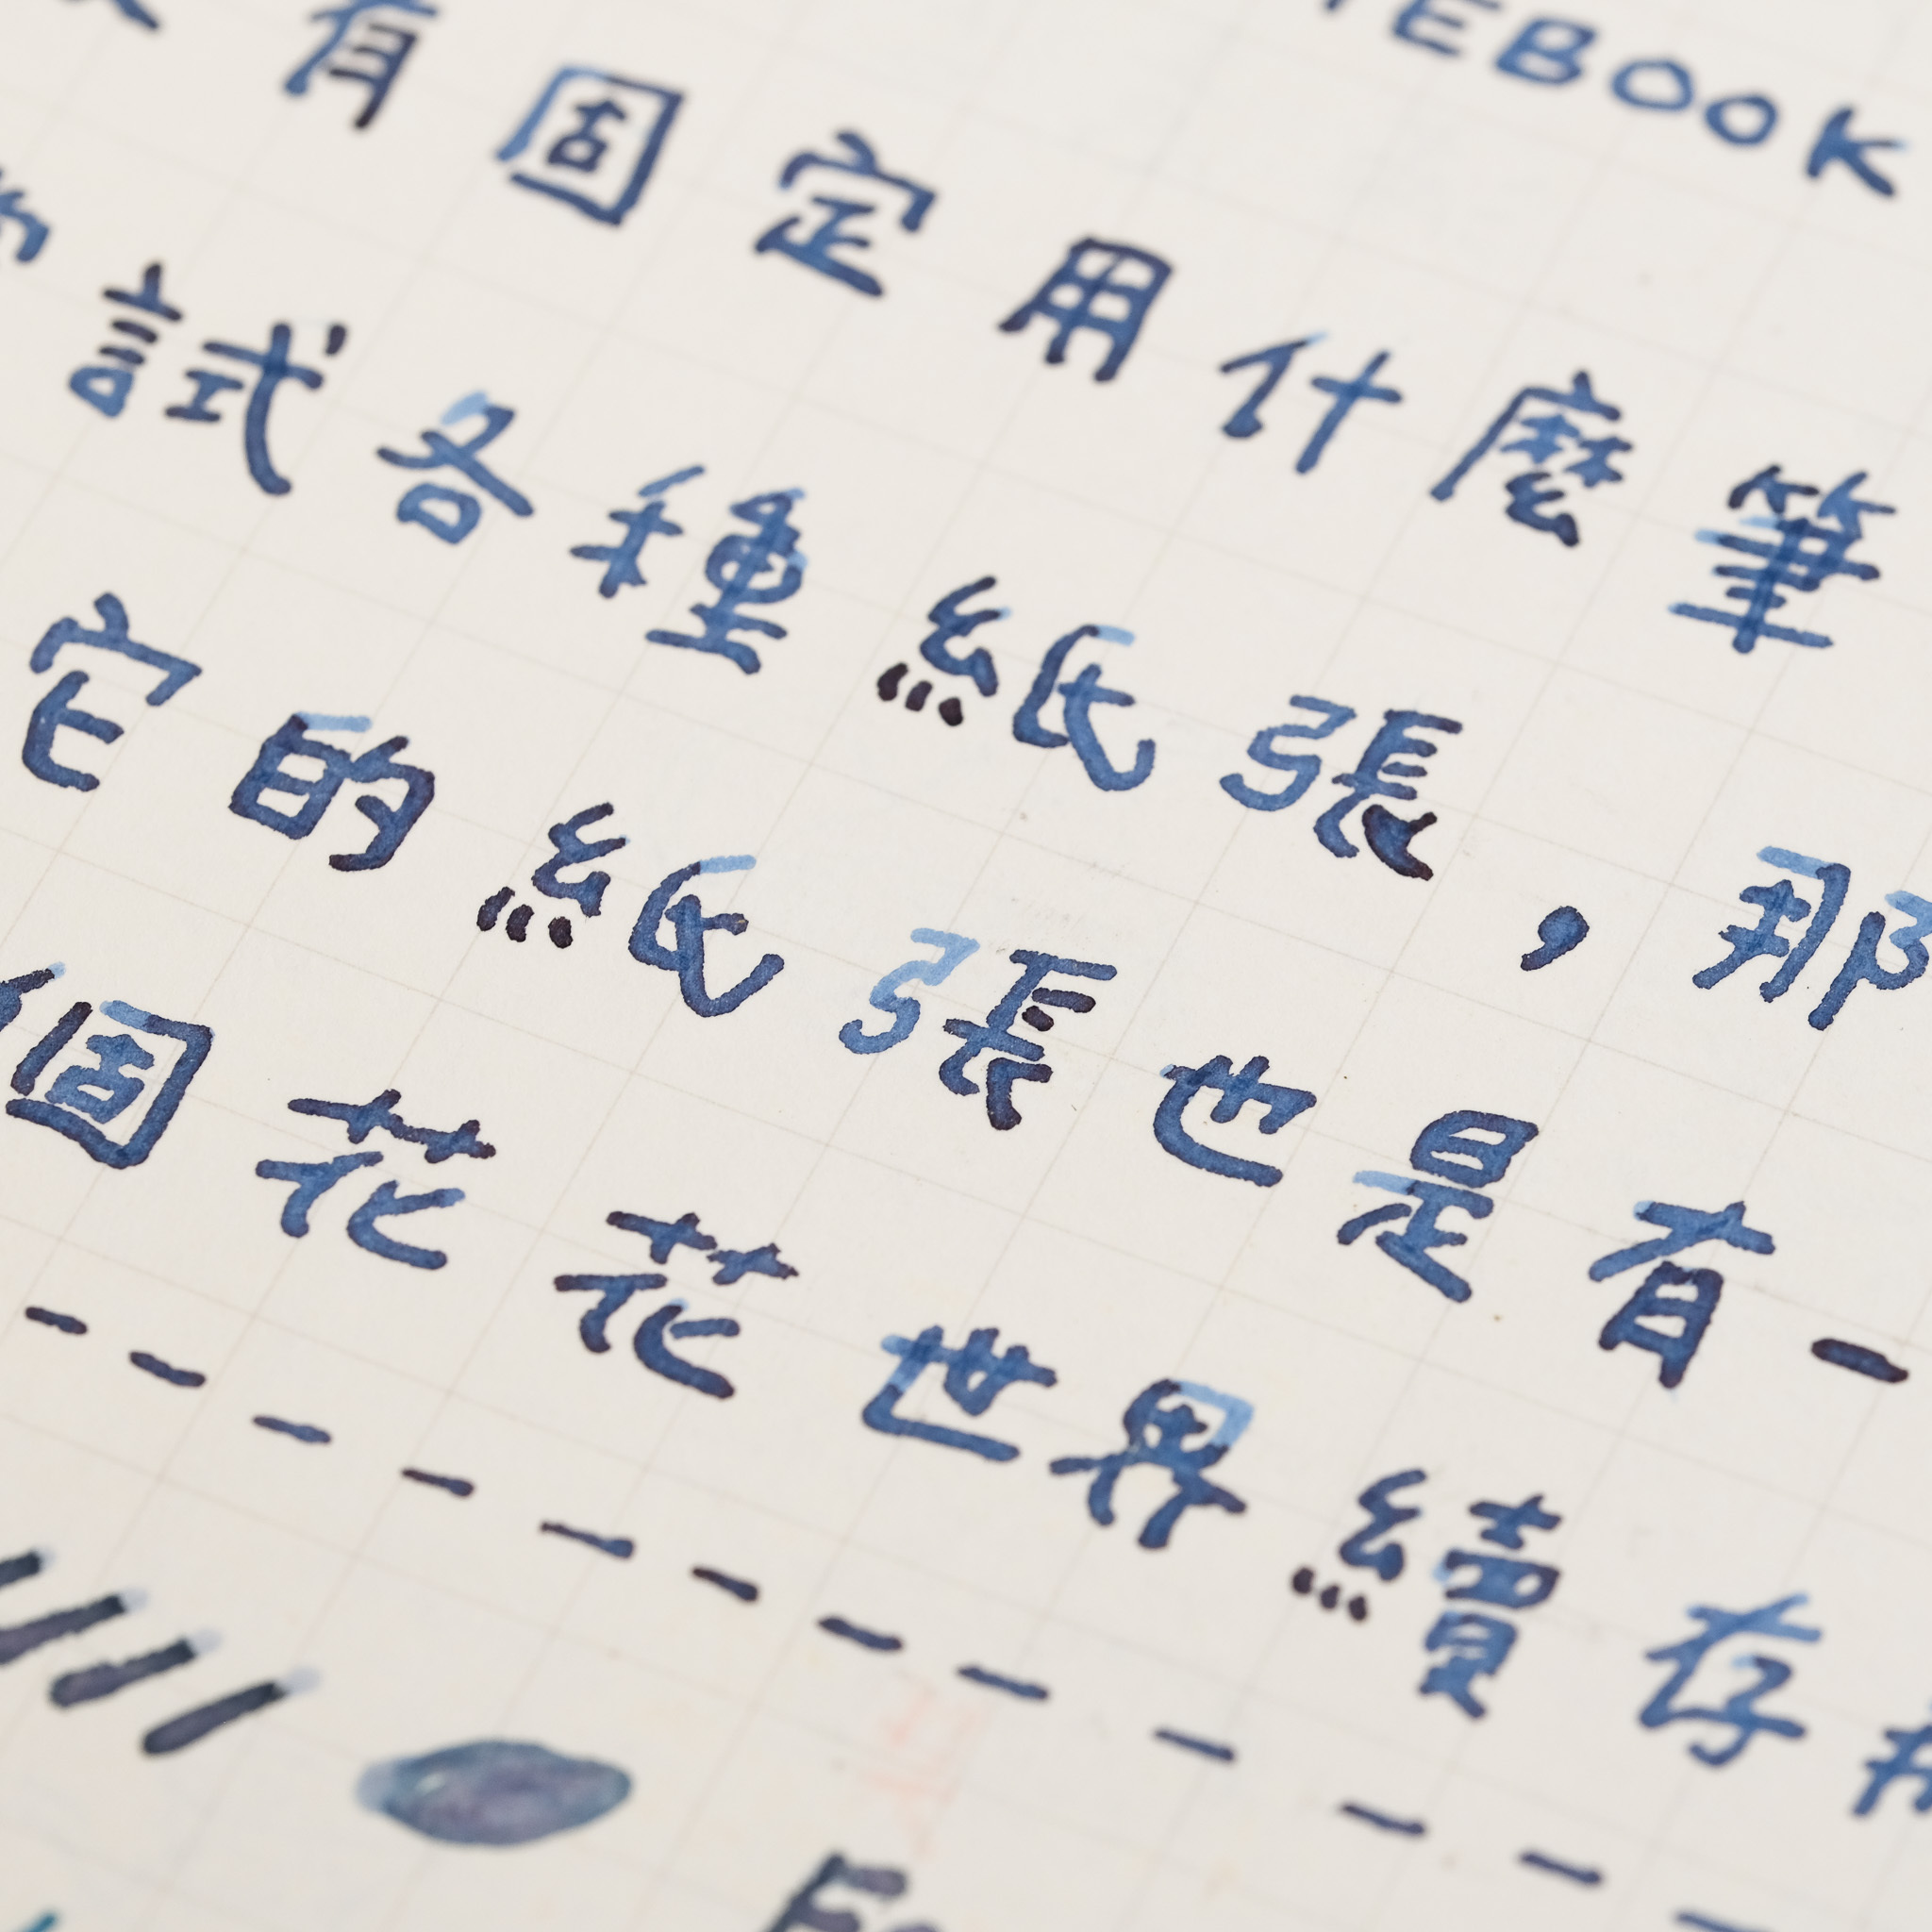 EBOOK
有固定用什麼筆
試各種紙張，那
它的紙張也是有一
個花花世界續存